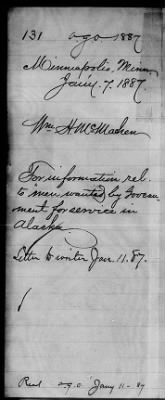 131 a.g.o. 1887
Minneapolis, Minn.
Jan'y. 7. 1887.
Wm H McMachen
For information rel.
to men wanted by Govern
ment for service in
Alaska.
Letter to writer Jan. 11. 87.
Recd a.g.o. Jany 11 - 87